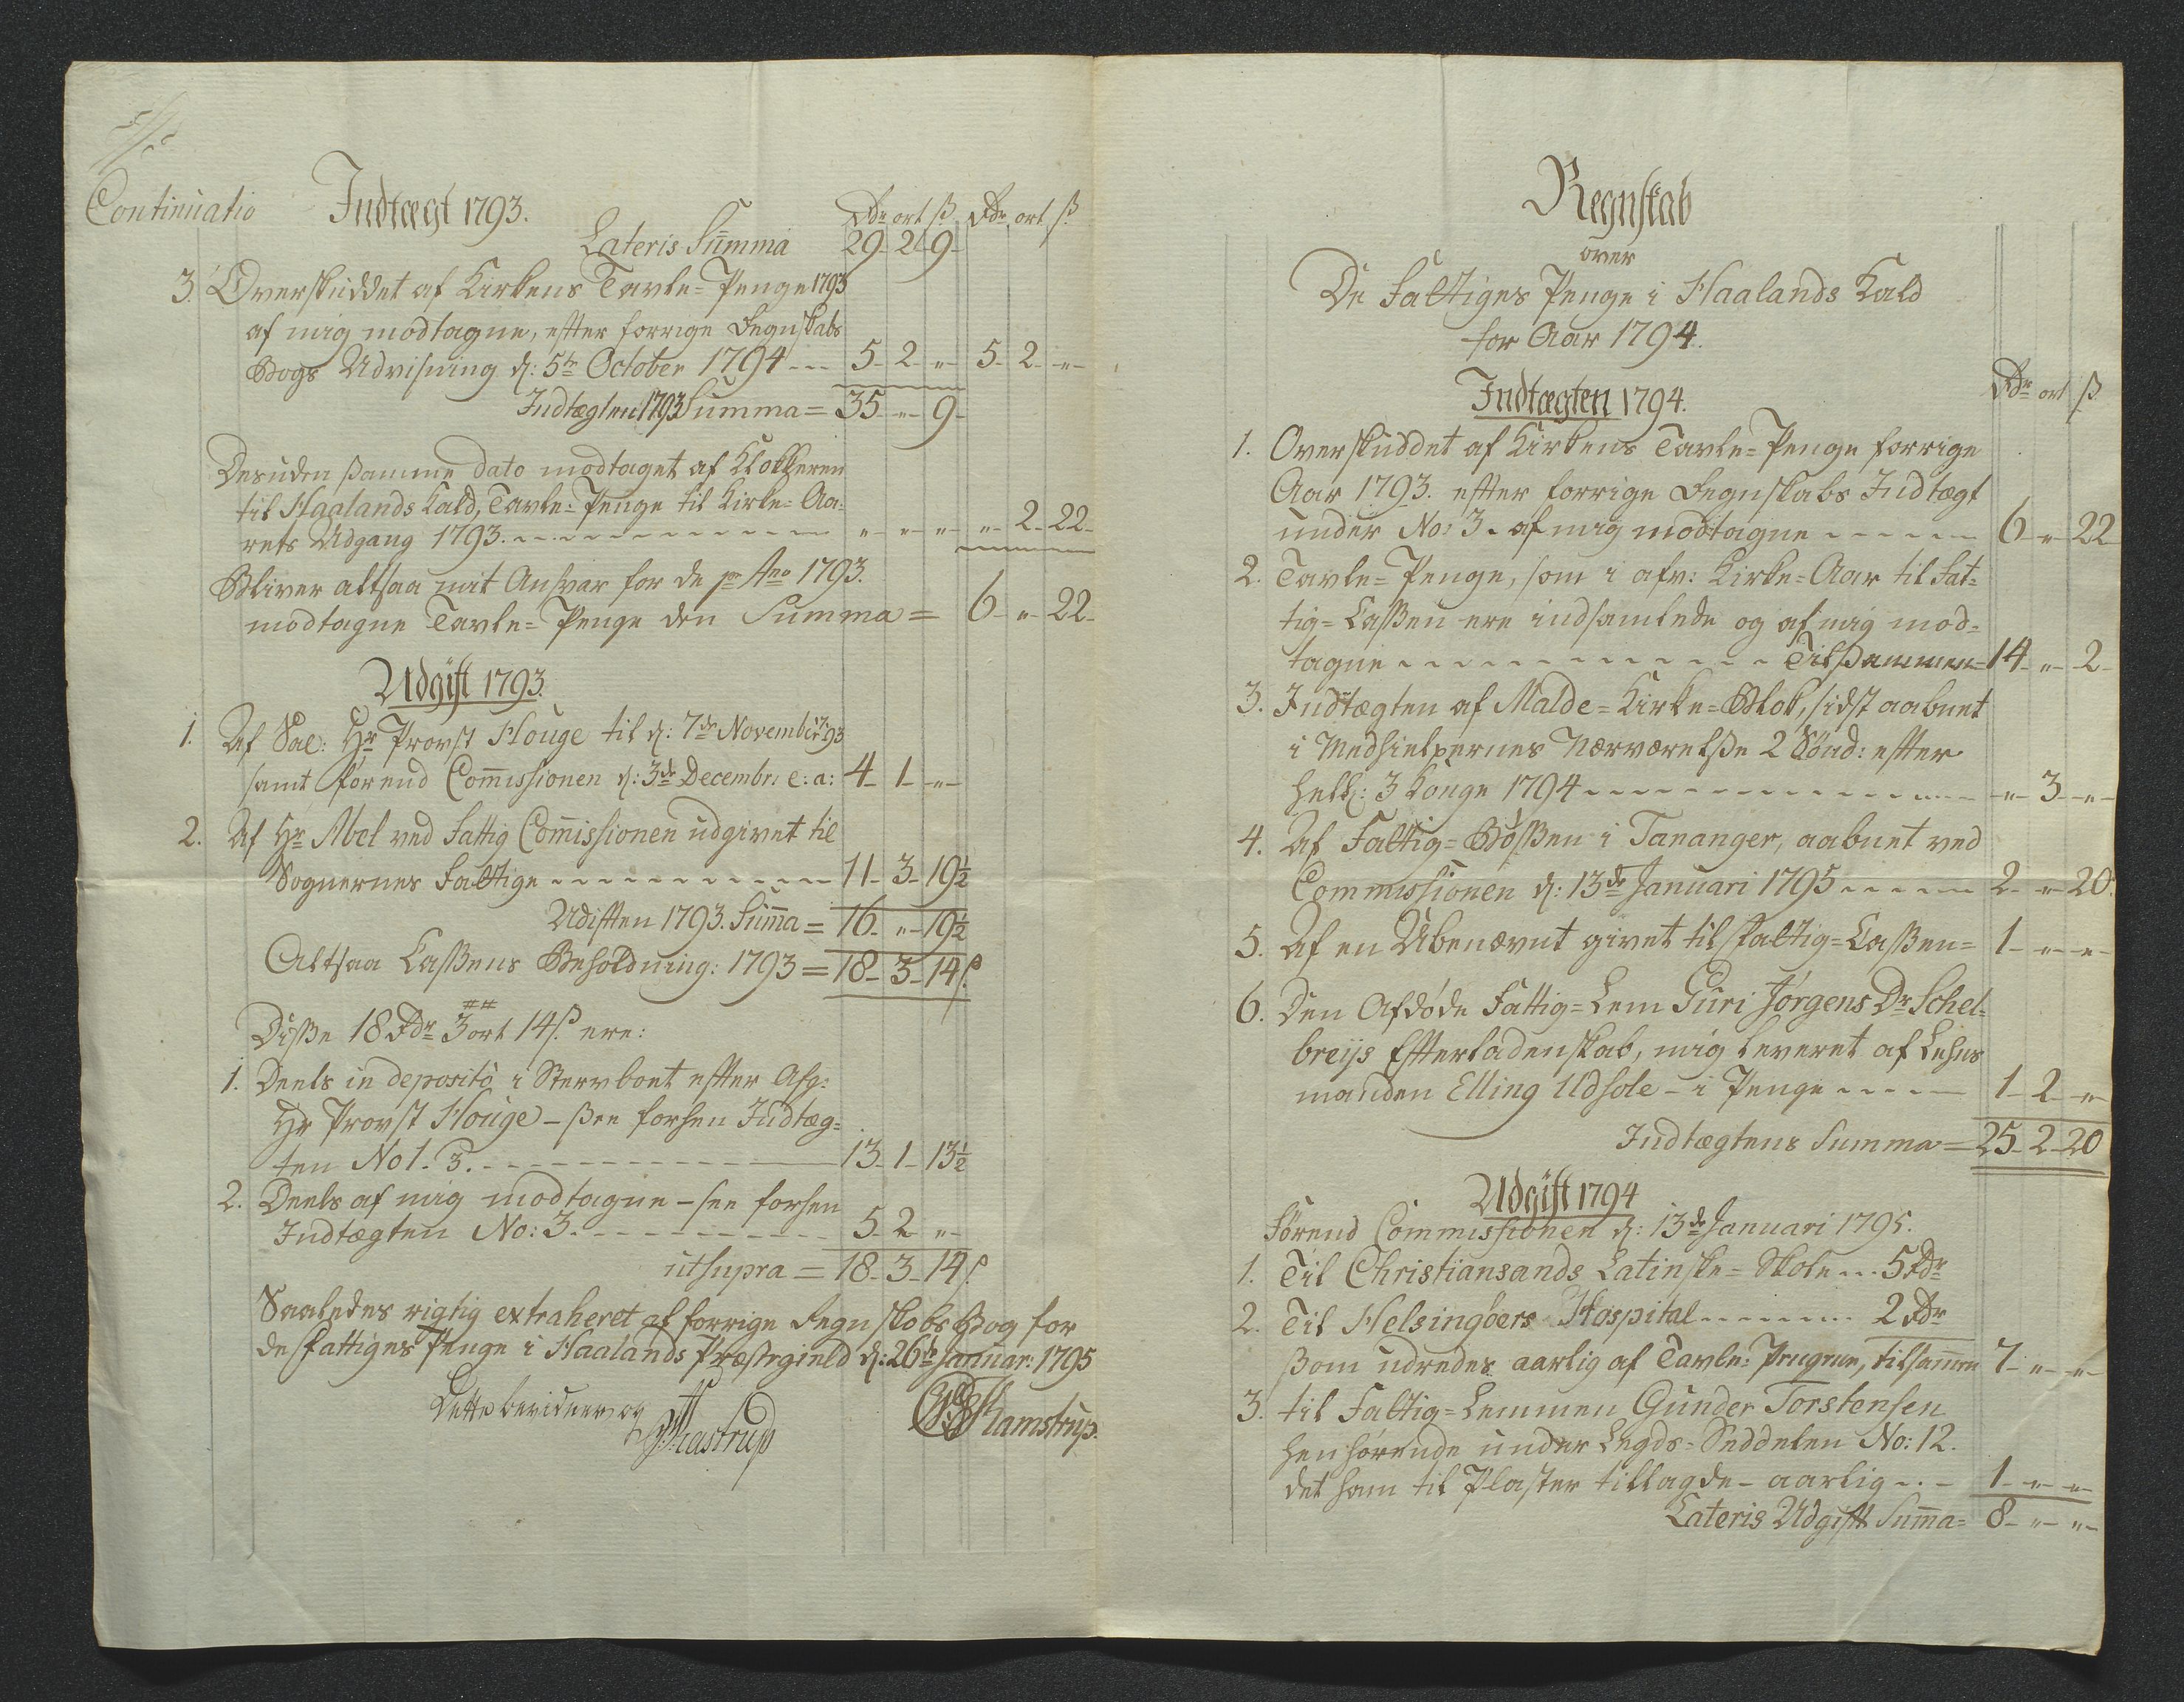 Continuatio Indtægt 1793.
Rdr ort ß Rdr ort ß
Lateris Summa 29- 2- 9-
3. Overskuddet af Kirkens Tavle-Penge 1793
af mig modtagne, efter forrige Regnskabs
Bogs Udvisning d: 5te October 1794 --- 5- 2- „- 5- 2- „-
Indtægten 1793 Summa = 35 „- 9-
Desuden samme dato modtaget af Klokkeren
til Haalands Kald, Tavle-Penge til Kirke-Aa-
rets Udgang 1793. „- „- „- „- 2- 22-
Bliver altsaa mit Ansvar for de pro Ano 1793.
modtagne Tavle-Penge den Summa = 6- „- 22-
Udgift 1793.
1. Af Sal: Hr Provst Houge til d: 7de Novembr: 1793
samt førend Com̄issionen d: 3de Decembr: e: a: 4- 1- „-
2. Af Hr Abel ved Fattig Com̄issionen udgivet til
Sognernes Fattige 11- 3- 19½
Udiften 1793. Sum̄a = 16- „- 19½
Altsaa Cassens Beholdning: 1793 = 18- 3- 14ß
Disse 18 Rdr 3 ort 14ß ere:
1. Deels in deposito i Stervboet efter Afg:
Hr Provst Houge - see forhen Indtæg-
ten No 1. 3. 13- 1- 13½
2. Deels af mig modtagne - see forhen
Indtægten No: 3. 5- 2- „-
ut supra = 18- 3- 14ß
Saaledes rigtig extraheret af forrige Regnskabs Bog for
de Fattiges Penge i Haalands Præstegield d: 26de Januar: 1795
Dette bevidner og
Kamstrup.
Regnskab
over
De Fattiges Penge i Haalands Kald
for Aar 1794.
Indtægten 1794. Rdr ort ß
1. Overskuddet af Kirkens Tavle-Penge forrige
Aar 1793. efter forrige Regnskabs Indtægt
under No: 3. af mig modtagne ------ 6- „- 22
2. Tavle-Penge, som i afv: Kirke-Aar til Fat-
tig-Cassen ere indsamlede og af mig mod-
tagne Tilsammen = 14- „- 2-
3. Indtægten af Malde-Kirke-Blok, sidst aabnet
i Medhielpernes Nærværelse 2 Sønd: efter
hell: 3 Konge 1794 „- 3- „-
4. Af Fattig-Bøssen i Tananger, aabnet ved
Commissionen d: 13de Januari 1795 2- „- 20.
5. Af en Ubenævnt givet til Fattig-Cassen = 1- „- „-
6. Den Afdøde Fattig-Lem Guri Jørgens Dr Schel-
breijs Efterladenskab, mig leveret af Lehns
manden Elling Udsole - i Penge 1- 2- „-
Indtægtens Summa = 25- 2- 20
Udgift 1794
Førend Commissionen d: 13de Januari 1795.
1. Til Christiansands Latinske-Skole --- 5 Rdr
2. Til Helsingøers Hospital 2 Rdr
som udredes aarlig af Tavle-Pengene, tilsam̄en 7- „- „-
3. til Fattig-Lemmen Gunder Torstensen
henhørende under Legds-Seddelen No: 12.
det ham til Plaster tillagde - aarlig --- 1- „- „-
Lateris Udgift Sum̄a = 8- „- „-